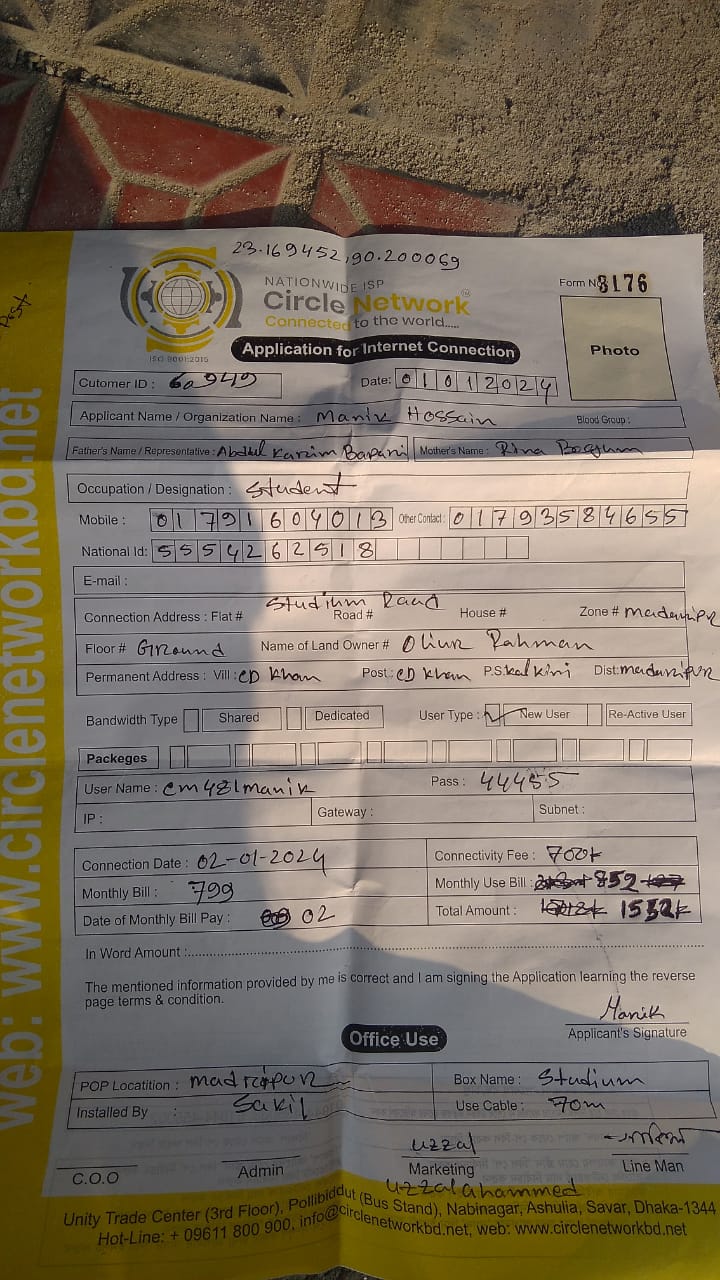 23.169452,90.200069
NATIONWIDE ISP
Circle Network
Connected to the world.....
ISO 9001:2015
Form No 3176
Photo
Application for Internet Connection
Cutomer ID : 60949 Date: 01012024
Applicant Name / Organization Name : Manik Hossain Blood Group :
Father's Name / Representative : Abdul Karim Bapari Mother's Name : Rina Begum
Occupation / Designation : Student
Mobile : 01791604013 Other Contact : 01793584655
National Id: 5554262518
E-mail :
Connection Address : Flat # Studium Road Road # House # Zone # madaripur
Floor # Ground Name of Land Owner # Oliur Rahman
Permanent Address : Vill : CD Khan Post : CD Khan P.S: kalkini Dist: madaripur
Bandwidth Type Shared Dedicated User Type : ✓ New User Re-Active User
Packeges
User Name : cm481manik Pass : 44455
IP : Gateway : Subnet :
Connection Date : 02-01-2024 Connectivity Fee : 700k
Monthly Bill : 799 Monthly Use Bill : 852
Date of Monthly Bill Pay : 02 Total Amount : 1552k
In Word Amount :
The mentioned information provided by me is correct and I am signing the Application learning the reverse
page terms & condition.
Manik
Applicant's Signature
Office Use
POP Locatition : madripur Box Name : Studium
Installed By : Sakil Use Cable : 70m
uzzal
C.O.O Admin Marketing Line Man
uzzal ahammed
Unity Trade Center (3rd Floor), Pollibiddut (Bus Stand), Nabinagar, Ashulia, Savar, Dhaka-1344
Hot-Line: + 09611 800 900, info@circlenetworkbd.net, web: www.circlenetworkbd.net
web: www.circlenetworkbd.net